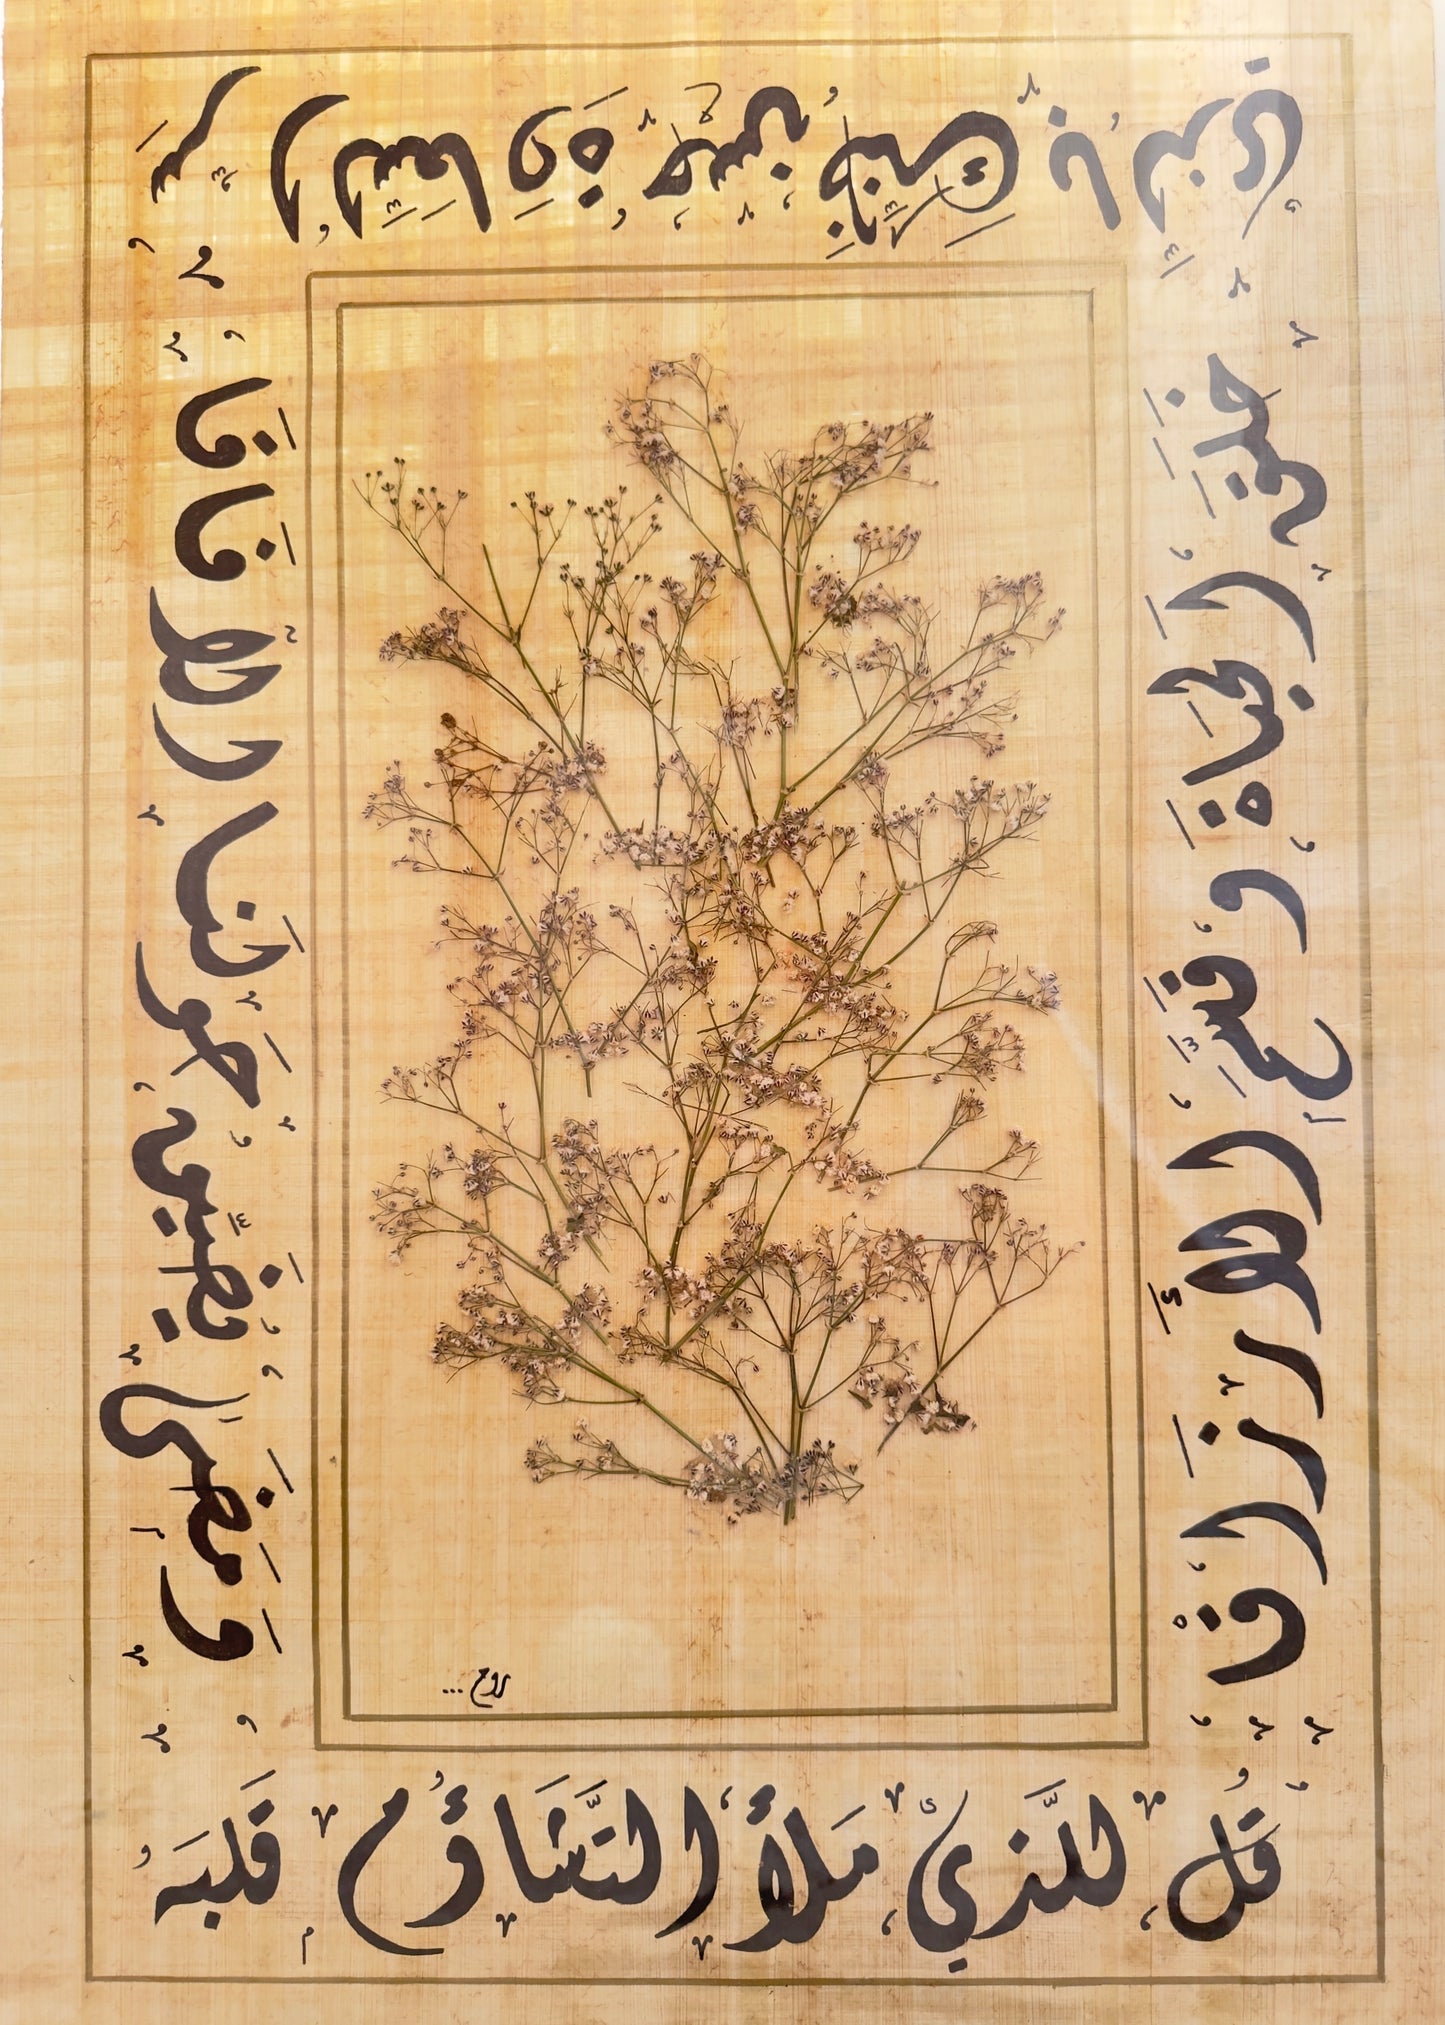 قُل للَّذي مَلأَ التَّشَاؤُم قَلبَهُ
وَمَضَى يُضَيِّقُ حَولَنَا الآفَاقَا
سِرُّ السَّعَادَةِ حُسنُ ظَنِّكَ بِالَّذِي
خَلَقَ الحَيَاةَ وَقَسَّمَ الأرزَاقا
روح...